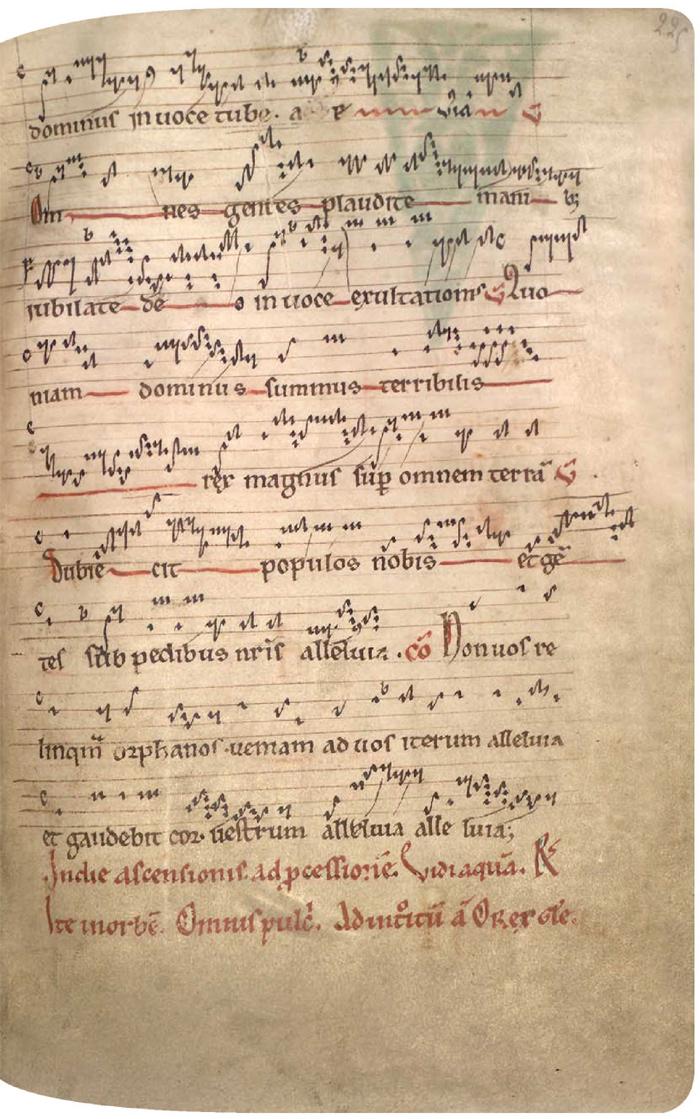 225
dominus in uoce tube. a
Om nes gentes plaudite manibꝫ
iubilate de o in uoce exultationis Quo
niam dominus summus terribilis
rex magnus sup̱ omnem terrā
Subie cit populos nobis et gē
tes sub pedibus nr̄is alleluia. cō Non uos re
linquā orphanos ueniam ad uos iterum alleluia
et gaudebit cor uestrum alleluia alle luia;
In die ascensionis. ad ꝓcessionē. Vidi aquā. R
Ite in orbē. Omnis pulc̄. Ad introitū ā O rex gl̄e.